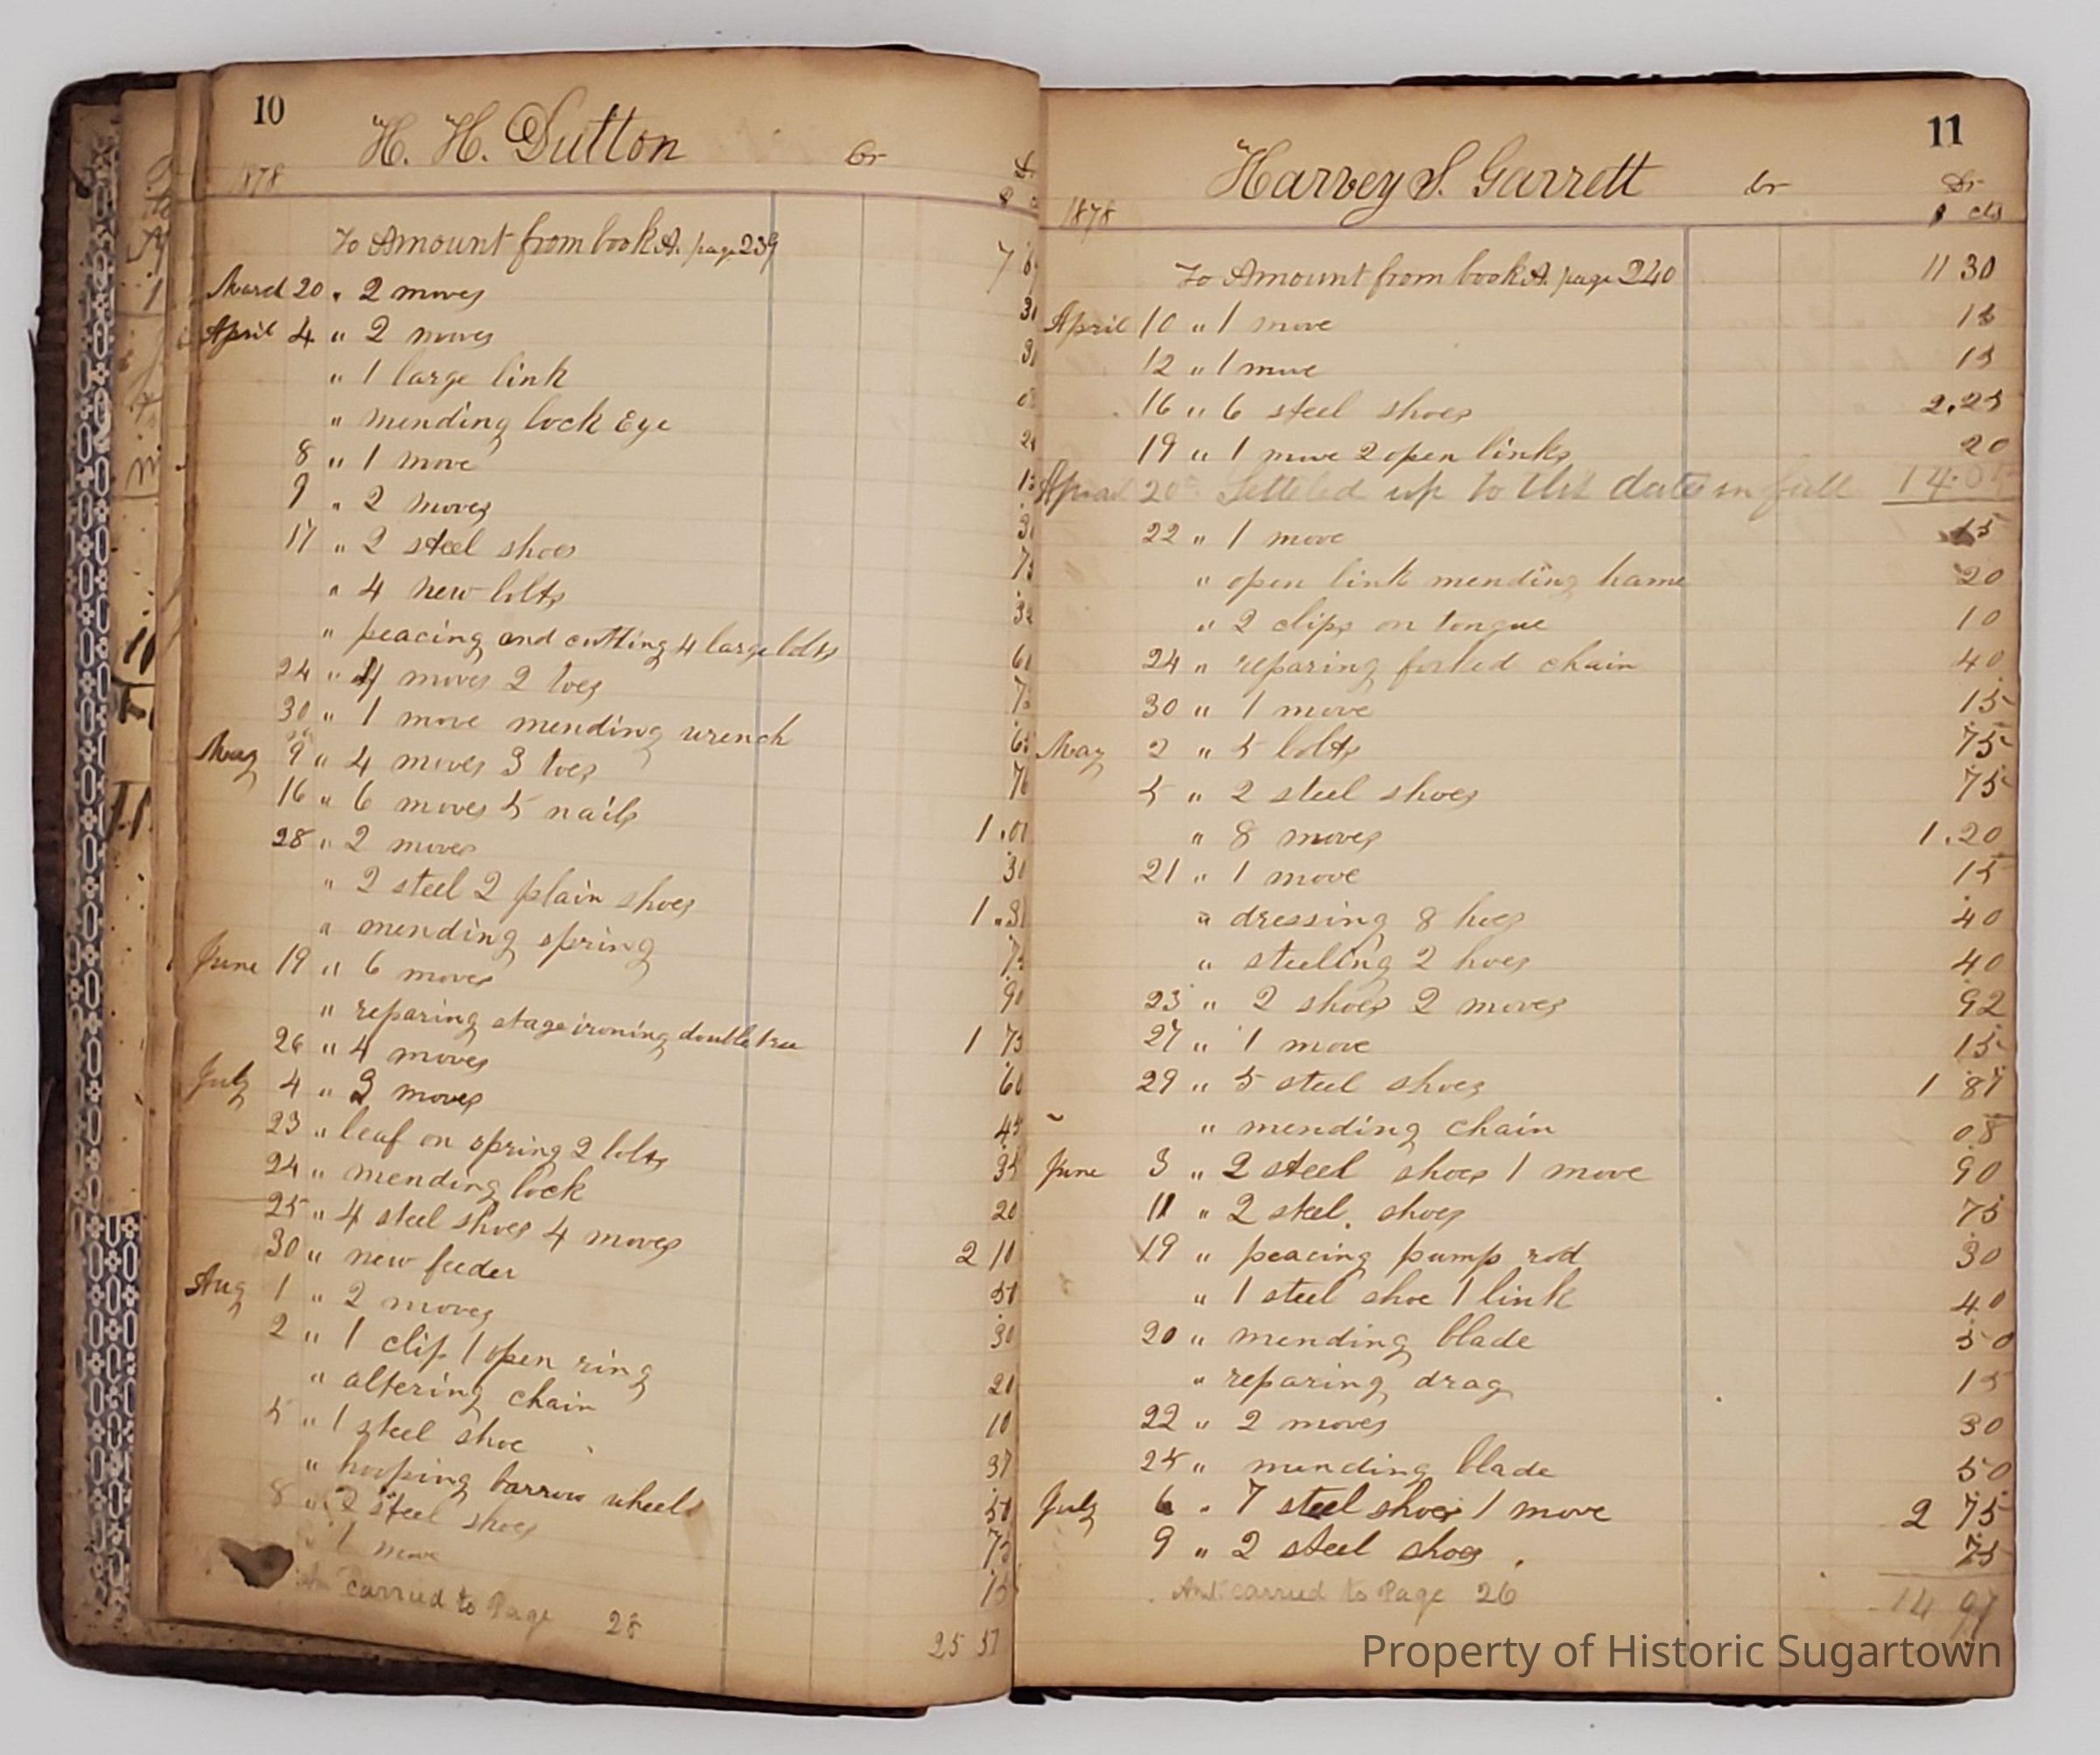 10
H. H. Dutton
Cr
1878
To Amount from book A. page 239
March 20 " 2 moves
April 4 " 2 moves
" 1 large link
" mending lock Eye
8 " 1 move
9 " 2 moves
17 " 2 steel shoes
" 4 new bolts
" peacing and cutting 4 large bolts
24 " 4 moves 2 toes
30 " 1 move mending wrench
May 9 " 4 moves 3 toes
16 " 6 moves 5 nails
28 " 2 moves 30
" 2 steel 2 plain shoes
" mending spring
June 19 " 6 moves 90
" reparing stage ironing double tree 1 75
26 " 4 moves 60
July 4 " 3 moves 45
23 " leaf on spring 2 bolts 35
24 " mending lock 20
25 " 4 steel shoes 4 moves 2 10
30 " new feeder 50
Aug 1 " 2 moves 30
2 " 1 clip 1 open ring 20
" altering chain 10
5 " 1 steel shoe 37
" hooping barrow wheel 50
8 " 2 steel shoes 75
" 1 move 15
carried to Page 28
25 57
11
Harvey S. Garrett
Cr Dr
1878 $ cts
To Amount from book A. page 240 11 30
April 10 " 1 move 15
12 " 1 move 15
16 " 6 steel shoes 2.25
19 " 1 move 2 open links 20
April 20 Setteled up to this date in full 14.05
22 " 1 move 15
" open link mending hame 20
" 2 clips on tongue 10
24 " reparing forked chain 40
30 " 1 move 15
May 2 " 5 bolts 75
5 " 2 steel shoes 75
" 8 moves 1.20
21 " 1 move 15
" dressing 8 hoes 40
" steeling 2 hoes 40
23 " 2 shoes 2 moves 92
27 " 1 move 15
29 " 5 steel shoes 1 87
" mending chain 08
June 3 " 2 steel shoes 1 move 90
11 " 2 steel shoes 75
19 " peacing pump rod 30
" 1 steel shoe 1 link 40
20 " mending blade 50
" reparing drag 15
22 " 2 moves 30
25 " mending blade 50
July 6 " 7 steel shoes 1 move 2 75
9 " 2 steel shoes 75
Amt carried to Page 26 14 97
Property of Historic Sugartown